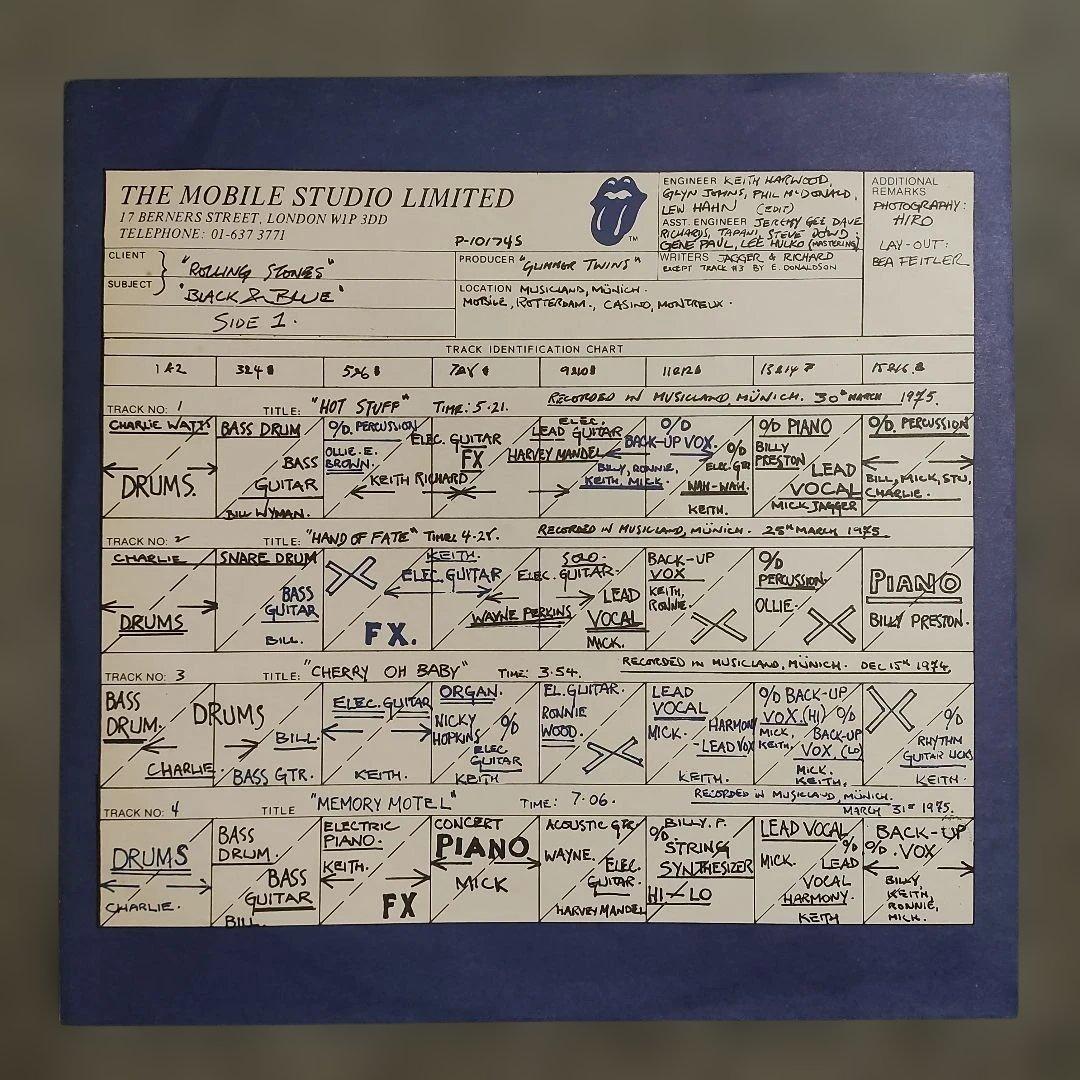 THE MOBILE STUDIO LIMITED
17 BERNERS STREET, LONDON W1P 3DD
TELEPHONE: 01-637 3771
P-10174S
TM
ENGINEER KEITH HARWOOD,
GLYN JOHNS, PHIL McDONALD,
LEW HAHN (EDIT)
ASST. ENGINEER JEREMY GEE DAVE
RICHARDS, TAPANI, STEVE DOWD;
GENE PAUL, LEE HULKO (MASTERING)
WRITERS JAGGER & RICHARD
EXCEPT TRACK #3 BY E. DONALDSON
ADDITIONAL
REMARKS
PHOTOGRAPHY:
HIRO
LAY-OUT:
BEA FEITLER
CLIENT
"ROLLING STONES"
SUBJECT
"BLACK & BLUE"
SIDE 1.
PRODUCER "GLIMMER TWINS"
LOCATION MUSICLAND, MÜNICH.
MOBILE, ROTTERDAM., CASINO, MONTREUX.
TRACK IDENTIFICATION CHART
1 & 2
3 & 4
5 & 6
7 & 8
9 & 10
11 & 12
13 & 14
15 & 16
TRACK NO: 1 TITLE: "HOT STUFF" TIME: 5.21. RECORDED IN MUSICLAND, MÜNICH. 30TH MARCH 1975.
CHARLIE WATTS
DRUMS.
BASS DRUM
BASS
GUITAR
BILL WYMAN.
O/D. PERCUSSION
OLLIE. E.
BROWN.
ELEC. GUITAR
FX
KEITH RICHARD
ELEC.
LEAD GUITAR
HARVEY MANDEL
O/D
BACK-UP VOX.
BILLY, RONNIE,
KEITH, MICK.
O/D
ELEC. GTR
WAH-WAH.
KEITH.
O/D PIANO
BILLY
PRESTON
LEAD
VOCAL
MICK JAGGER
O/D. PERCUSSION
BILL, MICK, STU,
CHARLIE.
TRACK NO: 2 TITLE: "HAND OF FATE" TIME: 4.28. RECORDED IN MUSICLAND, MÜNICH. 25TH MARCH 1975.
CHARLIE
DRUMS
SNARE DRUM
BASS
GUITAR
BILL.
FX.
KEITH.
ELEC. GUITAR
WAYNE PERKINS
SOLO.
ELEC. GUITAR.
LEAD
VOCAL
MICK.
BACK-UP
VOX
KEITH,
RONNIE.
O/D
PERCUSSION.
OLLIE.
PIANO
BILLY PRESTON.
TRACK NO: 3 TITLE: "CHERRY OH BABY" TIME: 3.54. RECORDED IN MUSICLAND, MÜNICH. DEC 15TH 1974.
BASS
DRUM.
DRUMS
CHARLIE
BILL.
BASS GTR.
ELEC. GUITAR
KEITH.
ORGAN.
NICKY
HOPKINS
O/D
ELEC
GUITAR
KEITH
EL. GUITAR.
RONNIE
WOOD.
LEAD
VOCAL
MICK.
HARMONY
-LEAD VOX
KEITH.
O/D BACK-UP
VOX. (HI)
MICK,
KEITH.
O/D
BACK-UP
VOX. (LO)
MICK.
KEITH.
O/D
RHYTHM
GUITAR LICKS
KEITH.
TRACK NO: 4 TITLE "MEMORY MOTEL" TIME: 7.06. RECORDED IN MUSICLAND, MÜNICH.
MARCH 31ST 1975.
DRUMS
CHARLIE.
BASS
DRUM.
BASS
GUITAR
BILL
ELECTRIC
PIANO.
KEITH.
FX
CONCERT
PIANO
MICK
ACOUSTIC GTR
WAYNE.
ELEC.
GUITAR.
HARVEY MANDEL
BILLY. P.
O/D.
STRING
SYNTHESIZER
HI - LO
LEAD VOCAL
MICK.
O/D
LEAD
VOCAL
HARMONY.
KEITH
BACK-UP
O/D. VOX
BILLY,
KEITH,
RONNIE,
MICK.